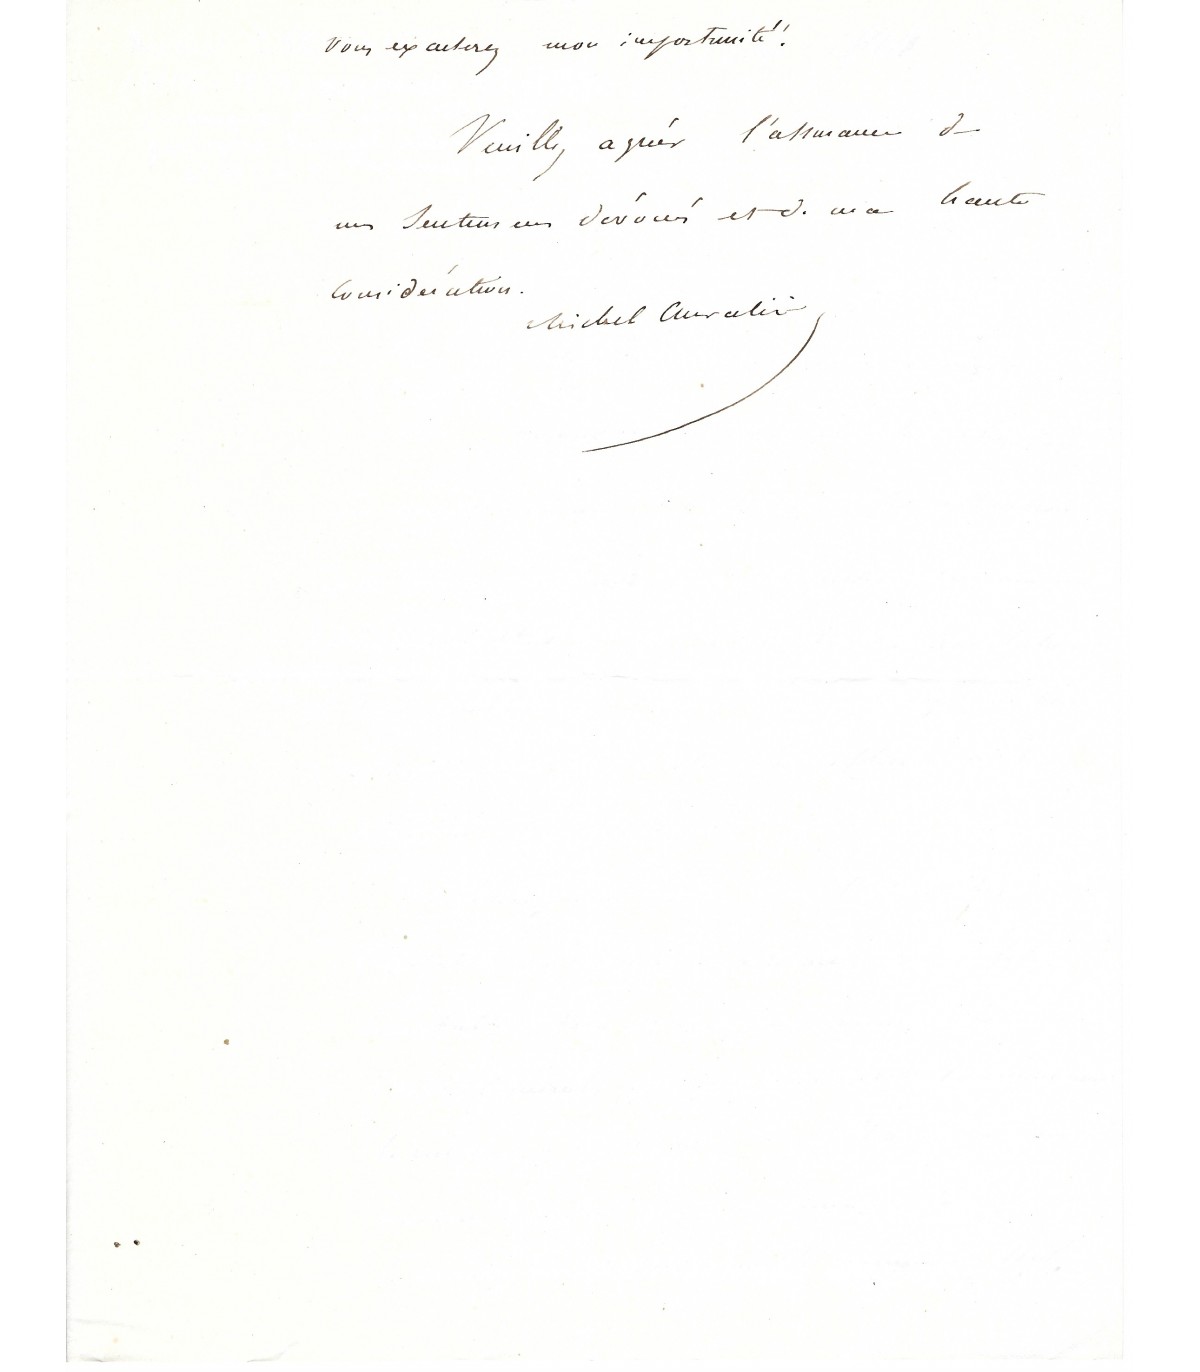 vous excuserez mon importunité!
Veuillez agréer l'assurance de
mes sentimens dévoués et de ma haute
considération.
Michel Chevalier